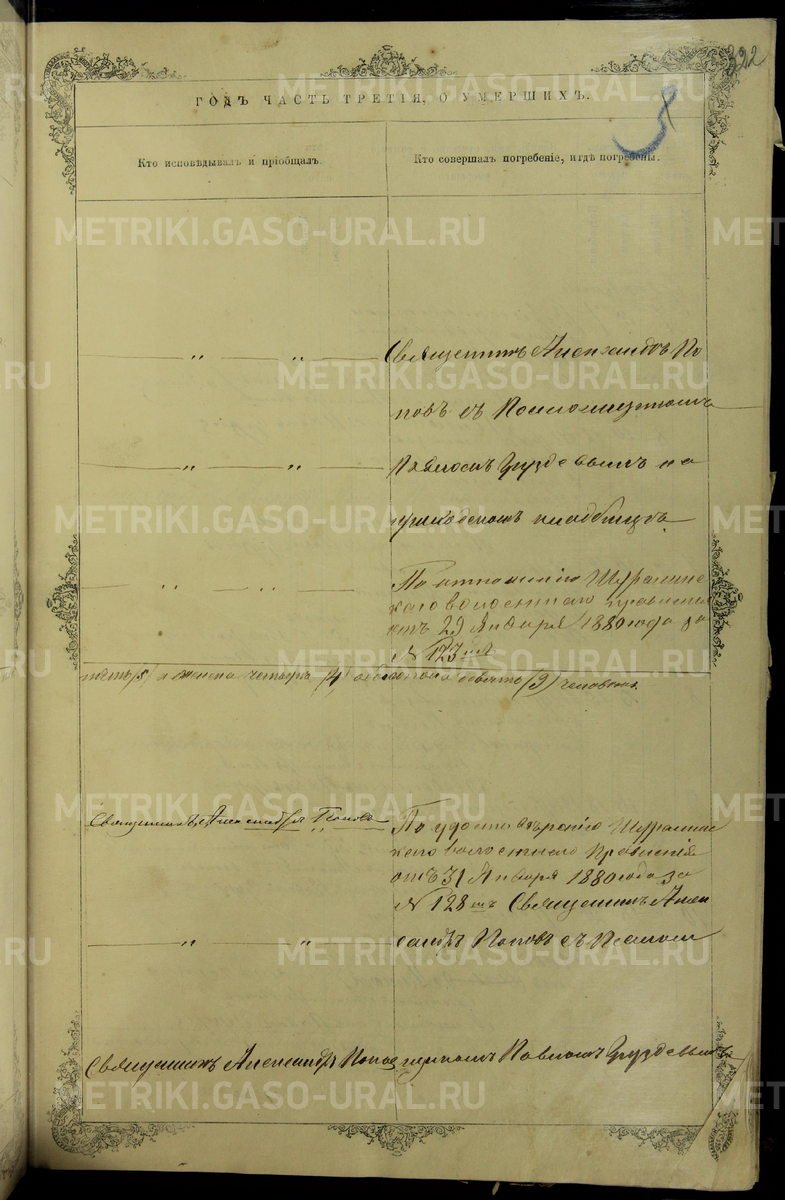 322
ГОДЪ ЧАСТЬ ТРЕТІЯ, О УМЕРШИХЪ.
Кто исповѣдывалъ и пріобщалъ.
Кто совершалъ погребеніе, и гдѣ погребены.
Священникъ Александръ По
повъ съ Псаломщикомъ
Павломъ Груздевымъ на
приходскомъ кладбищѣ
По отношенію Шурминс
каго волостнаго правленія
отъ 29 Января 1880 года за
N 123
пять (5) а женска четыре (4) обоего пола девять (9) человекъ.
Священникъ Александръ Поповъ
По удостовѣренію Шурминс
каго волостнаго Правленія
отъ 31 Января 1880 года за
N 128 мъ Священникъ Алек
сандръ Поповъ съ Псалом
Священникъ Александръ Попов
щикомъ Павломъ Груздевымъ
METRIKI.GASO-URAL.RU